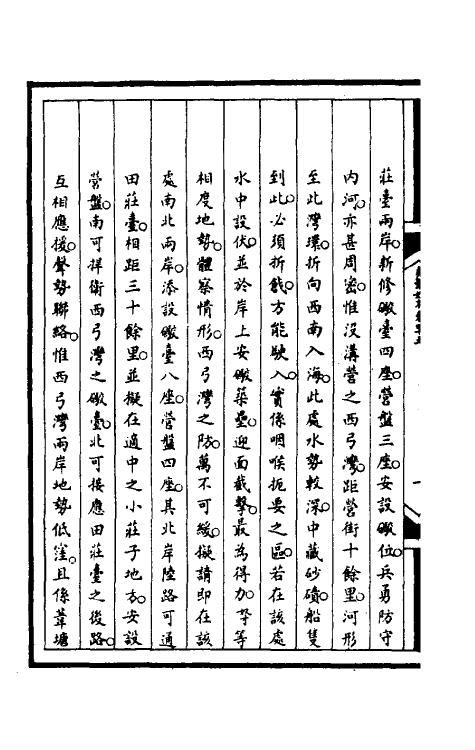 莊臺兩岸新修礮臺四座營盤三座安設礮位兵勇防守
內河亦甚周密惟沒溝營之西弓灣距營街十餘里河形
至此灣環折向西南入海此處水勢較深中藏砂磧船隻
到此必須折戧方能駛入實係咽喉扼要之區若在該處
水中設伏並於岸上安礮築壘迎面截擊最為得力等等
相度地勢體察情形西弓灣之防萬不可緩擬請即在該
處南北兩岸添設礮臺八座營盤四座其北岸陸路可通
田莊臺相距三十餘里並擬在適中之小莊子地方安設
營盤南可捍衛西弓灣之礮臺北可接應田莊臺之後路
互相應援聲勢聯絡惟西弓灣兩岸地勢低窪且係葦塘